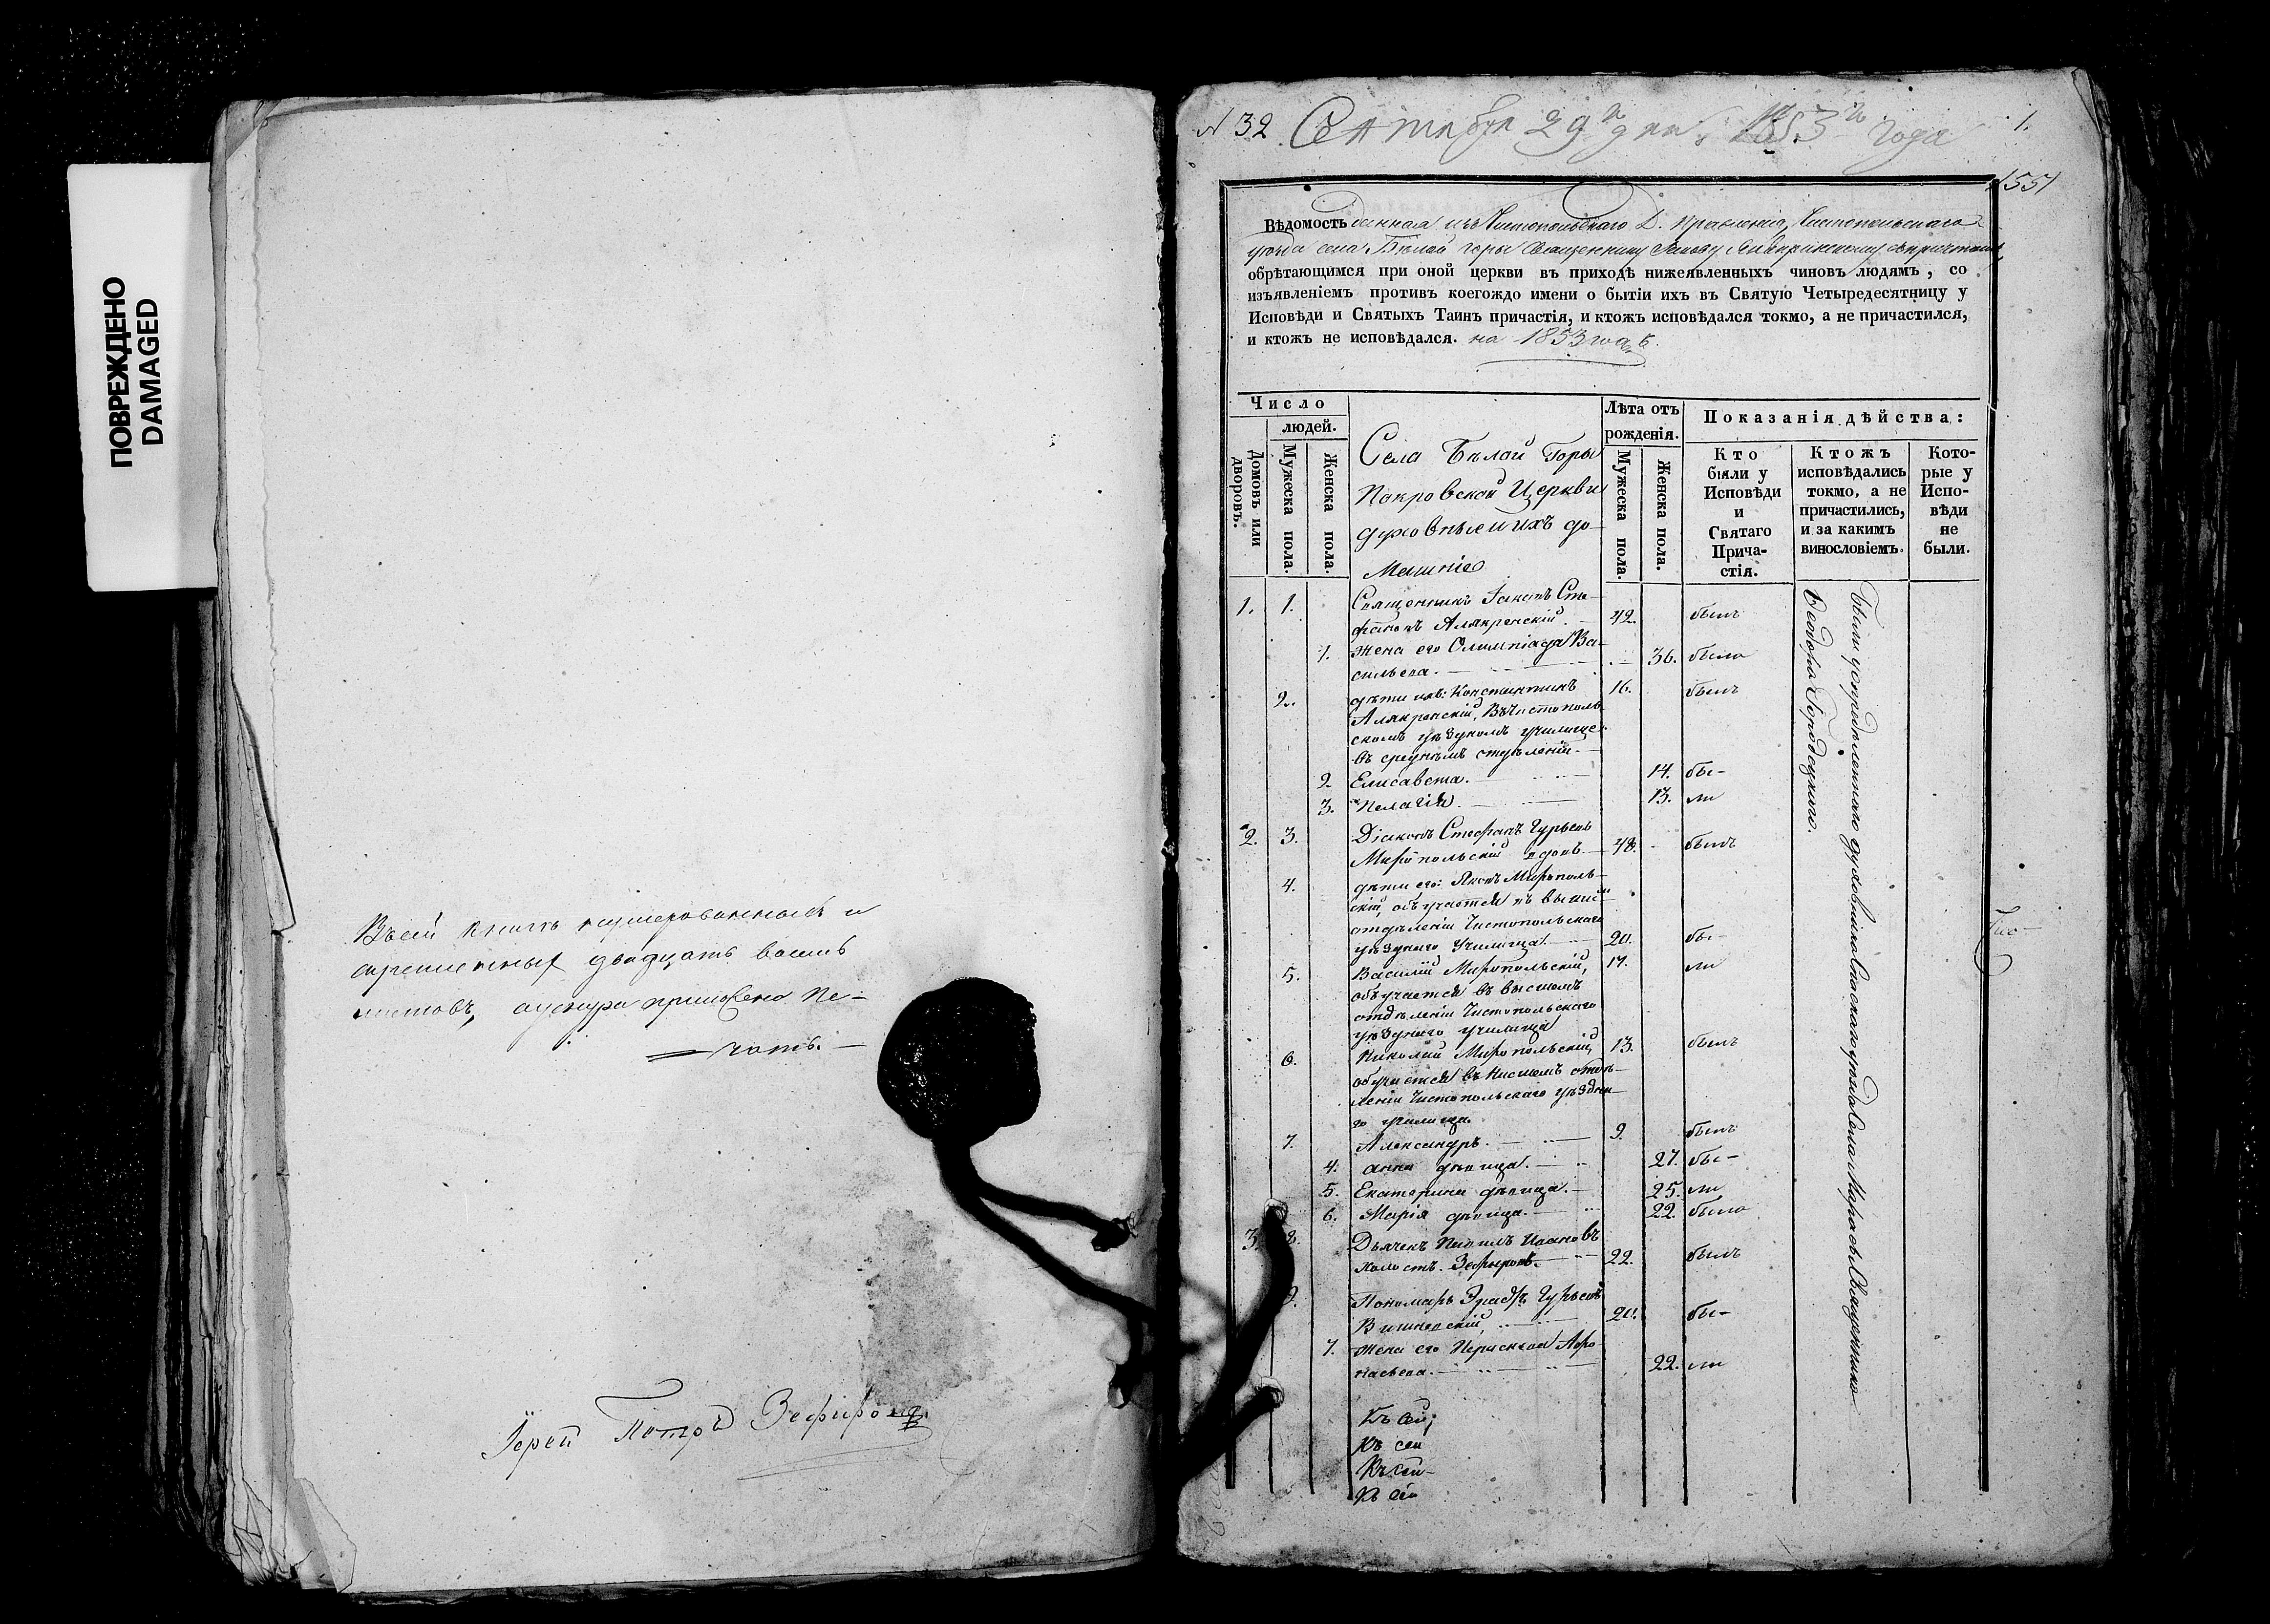 ПОВРЕЖДЕНО
DAMAGED
Въ сей книгѣ нумерованныхъ и
скрепленныхъ двадцать восемь
листовъ, а у шнура приложена пе-
чать.
Іерей Петръ Зефировъ
№ 32 Сентября 29 дня 1853го года
1.
1551
Вѣдомость данная изъ Чистопольскаго Д. Правленія, Чистопольскаго
уѣзда села Бѣлой горы Священнику Іакову Алякринскому съ причтомъ
обрѣтающимся при оной церкви въ приходѣ нижеявленныхъ чиновъ людямъ, со
изъявленіемъ противъ коегождо имени о бытіи ихъ въ Святую Четыредесятницу у
Исповѣди и Святыхъ Таинъ причастія, и ктожъ исповѣдался токмо, а не причастился,
и ктожъ не исповѣдался. на 1853 годъ.
Число
людей.
Домовъ или дворовъ.
Мужеска пола.
Женска пола.
Села Бѣлой Горы
Покровской Церкви
духовные и ихъ до-
машніе
Лѣта отъ
рожденія.
Мужеска пола.
Женска пола.
Показанія дѣйства:
Кто
были у
Исповѣди
и
Святаго
Прича-
стія.
Ктожъ
исповѣдались
токмо, а не
причастились,
и за какимъ
винословіемъ.
Кото-
рые у
Испо-
вѣди
не
были.
1. 1. Священникъ Іаковъ Сте-
фановъ Алякренскій. 42. былъ
1. жена его Олимпіада Ва-
сильева. 36. была
2. дѣти ихъ: Константинъ 16. былъ
Алякренскій, въ Чистополь-
скомъ уѣздномъ училище
въ среднемъ отдѣленіи.
2 Елисавета. 14. бы-
3. Пелагія. 13. ли
2. 3. Діаконъ Стефанъ Гурьевъ
Миропольскій вдовъ. 48. былъ
4. дѣти его: Яковъ Мирополь-
скій, обучается въ высшем
отдѣленіи Чистопольскаго
уѣзднаго Училища. 20. бы-
5. Василій Миропольскій, 17. ли
обучается въ высшемъ
отдѣленіи Чистопольскаго
уѣзднаго училища
6. Николай Миропольскій, 13. былъ
обучается въ низшемъ отдѣ-
леніи Чистопольскаго уѣздна-
го училища.
7. Александръ. 9. былъ
4. Анна дѣвица. 27. бы-
5. Екатерина дѣвица. 25. ли
6. Марія дѣвица. 22. была
3. 8. Дьячекъ Михаилъ Ивановъ
холостъ. Зефировъ. 22. былъ
9. Пономарь Гурьевъ
Вишневскій, бы-
7. жена его Параскева Афо-
насьева. 22. ли
Къ сей
Къ сей
Къ сей
Къ сей
Были у опредѣленнаго духовника Спасскаго уѣзда Села Марасы Священника
Ѳеодора Городецкаго.